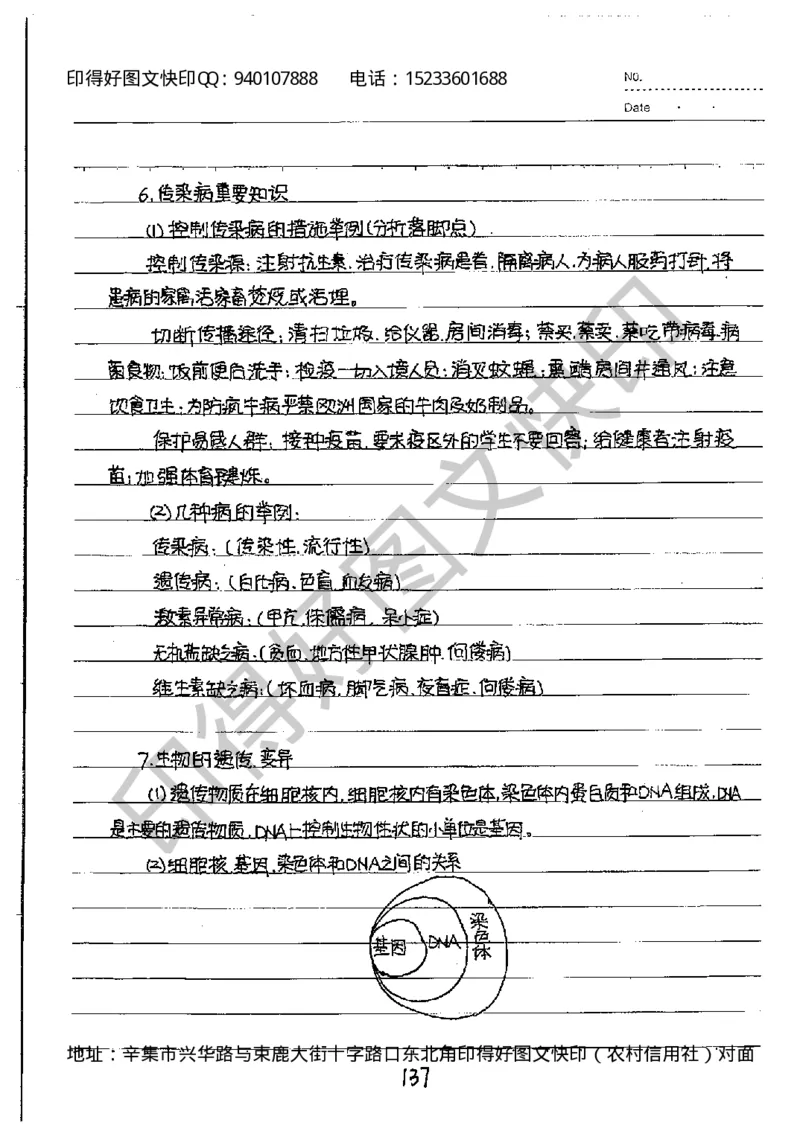 印得好图文快印QQ：940107888 电话：15233601688
No.
Date
6.传染病重要知识
(1)控制传染病的措施举例(分析落脚点)
控制传染源：注射抗生素.治疗传染病患者.隔离病人.为病人服药打针.将
患病的家禽,活家畜焚烧或深埋。
切断传播途径；清扫垃圾.给仪器.房间消毒；禁买.禁卖.禁吃带病毒病
菌食物；饭前便后洗手；检疫一切入境人员；消灭蚊蝇；重晒房间并通风；注意
饮食卫生；为防疯牛病严禁欧洲国家的牛肉及奶制品。
保护易感人群：接种疫苗.要求疫区外的学生不要回宿；给健康者注射疫
苗；加强体育锻炼。
(2)几种病的举例：
传染病：(传染性.流行性)
遗传病：(白化病.色盲.血友病)
激素异常病：(甲亢.侏儒病.呆小症)
无机盐缺乏病：(贫血.地方性甲状腺肿.佝偻病)
维生素缺乏病：(坏血病.脚气病.夜盲症.佝偻病)
7.生物的遗传.变异
(1)遗传物质在细胞核内.细胞核内有染色体,染色体内蛋白质和DNA组成.DNA
是主要的遗传物质.DNA上控制生物性状的小单位是基因。
(2)细胞核.基因.染色体和DNA之间的关系
基因 DNA 染色体
地址：辛集市兴华路与束鹿大街十字路口东北角印得好图文快印（农村信用社）对面
137
印得好图文快印